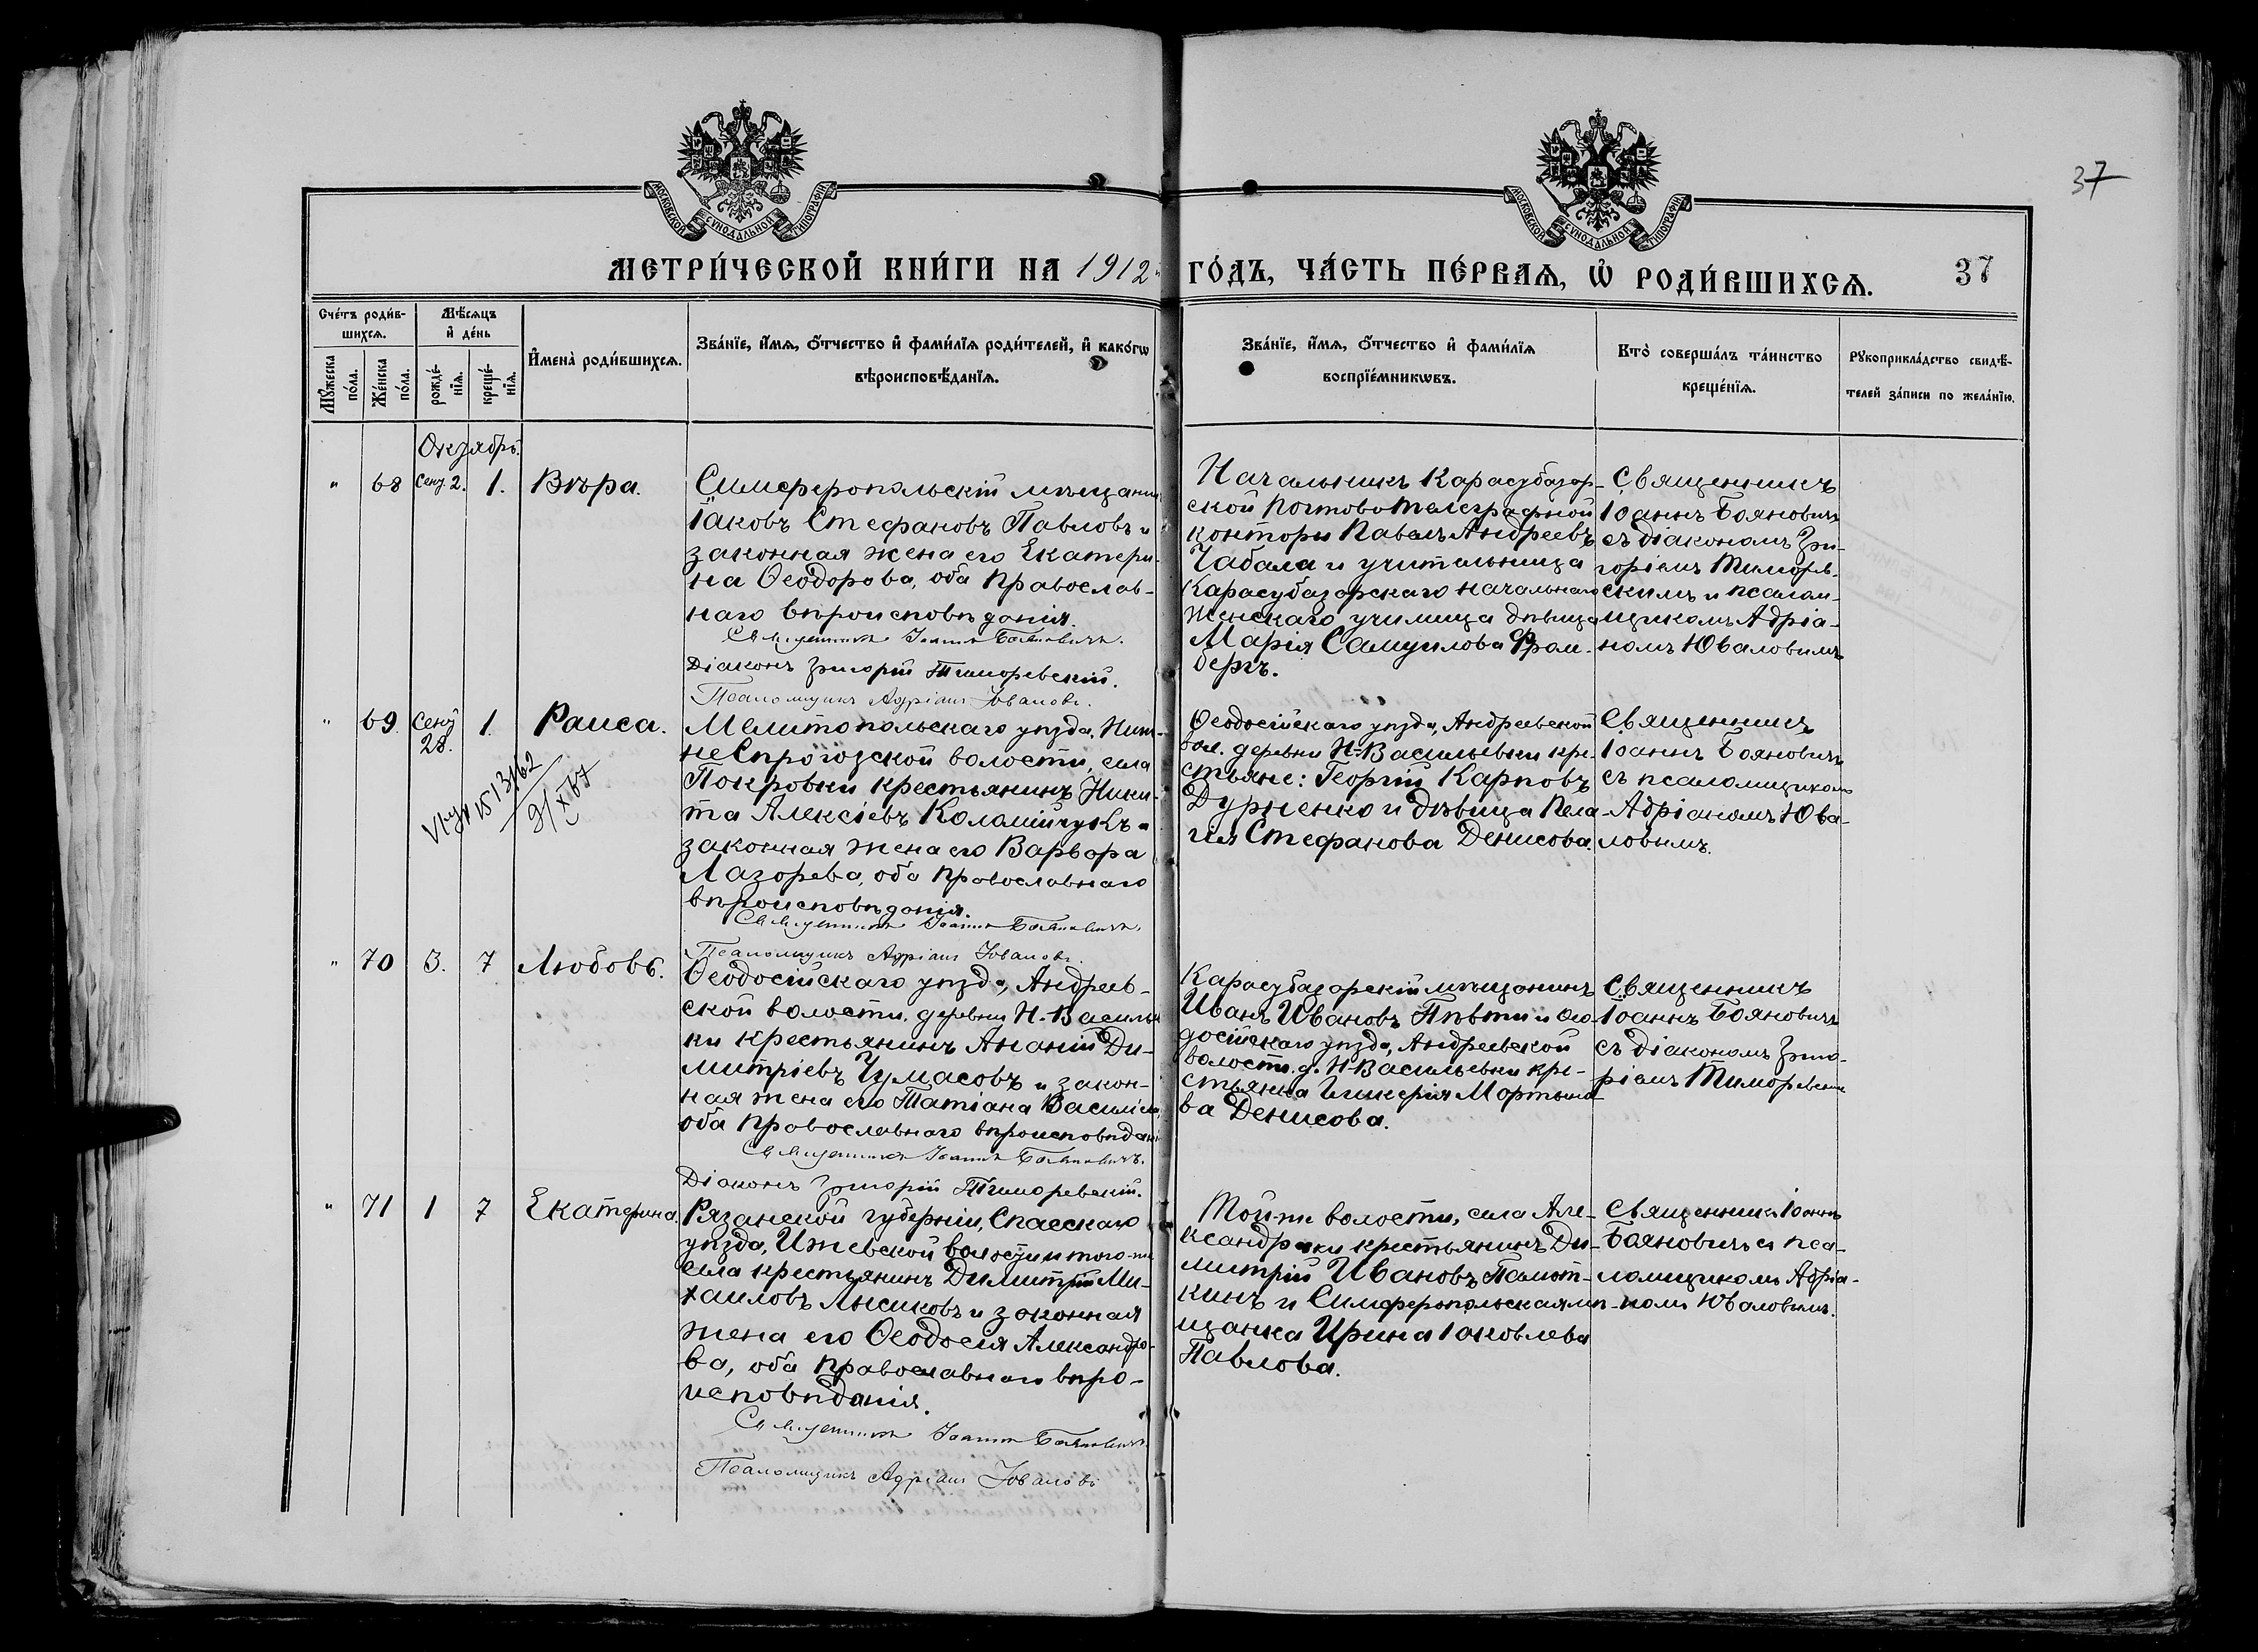 37
МОСКОВСКОЙ СѴНОДАЛЬНОЙ ТИПОГРАФІИ
МОСКОВСКОЙ СѴНОДАЛЬНОЙ ТИПОГРАФІИ
МЕТРИ́ЧЕСКОЙ КНИ́ГИ НА 1912 ГО́ДЪ, ЧА́СТЬ ПЕ́РВАѦ, Ѡ҆ РОДИ́ВШИХСѦ.
37
Сче́тъ роди́в-
шихсѧ.
Мѣ́сѧцъ
и҆ де́нь
Мꙋ́жеска по́ла.
Же́нска по́ла.
рожде́-
нїѧ.
креще́-
нїѧ.
И҆мена̀ роди́вшихсѧ.
Зва́нїе, и҆́мѧ, ѻ҆́тчество и҆ фами́лїѧ роди́телей, и҆ како́гѡ
вѣроисповѣ́данїѧ.
Зва́нїе, и҆́мѧ, ѻ҆́тчество и҆ фами́лїѧ
воспрїе́мникѡвъ.
Кто̀ соверша́лъ та́инство
креще́нїѧ.
Рꙋкоприкла́дство свидѣ́-
телей за́писи по жела́нїю.
Октябрь.
" 68 Сент. 2. 1. Вѣра.
Симферопольскій мѣщанинъ
Іаковъ Стефановъ Павловъ и
законная жена его Екатери-
на Ѳеодорова, оба Православ-
наго вѣроисповѣданія.
Священникъ Іоаннъ Бояновичъ.
Діаконъ Григорій Тиморевскій.
Псаломщикъ Адріанъ Юваловъ.
Начальникъ Карасубазар-
ской Почтово Телеграфной
конторы Павелъ Андреевъ
Чабала и учительница
Карасубазарскаго начальнаго
женскаго училища дѣвица
Марія Самуилова Фром-
бергъ.
Священникъ
Іоаннъ Бояновичъ
съ діакономъ Гри-
горіемъ Тиморев-
скимъ и псалом-
щикомъ Адріа-
номъ Юваловымъ
" 69 Сент. 28. 1. Раиса.
13/62
Мелитопольскаго уѣзда, Ниж-
не Сірогозской волости, села
Покровки крестьянинъ Ники-
та Алексіевъ Коломійчукъ и
законная жена его Варвара
Лазорева, оба Православнаго
вѣроисповѣданія.
Священникъ Іоаннъ Бояновичъ.
Псаломщикъ Адріанъ Юваловъ.
Ѳеодосійскаго уѣзда, Андреевской
вол. деревни Н-Васильевки кре-
стьяне: Георгій Карповъ
Дурненко и дѣвица Пела-
гія Стефанова Денисова.
Священникъ
Іоаннъ Бояновичъ
съ псаломщикомъ
Адріаномъ Юва-
ловымъ.
" 70 3. 7 Любовь.
Ѳеодосійскаго уѣзда, Андреев-
ской волости, деревни Н. Василь
ки крестьянинъ Ананій Ди-
митріевъ Чумасовъ и закон-
ная жена его Татіана Василіева
оба Православнаго вѣроисповѣдані
Священникъ Іоаннъ Бояновичъ.
Діаконъ Григорій Тиморевскій.
Карасубазарскій мѣщанинъ
Иванъ Ивановъ и Ѳео-
досійскаго уѣзда, Андреевской
волости, д. Н-Васильевки кре-
стьянка Гликерія Мартыно
ва Денисова.
Священникъ
Іоаннъ Бояновичъ
съ діакономъ Григо-
ріемъ Тиморевским
" 71 1 7 Екатерина.
Рязанской губерніи, Спасскаго
уѣзда, Ижевской волости и того-же
села крестьянинъ Димитрій Ми-
хаиловъ Лысиковъ и законная
жена его Ѳеодосія Александро-
ва, оба Православнаго вѣро-
исповѣданія.
Священникъ Іоаннъ Бояновичъ.
Псаломщикъ Адріанъ Юваловъ
Той-же волости, села Але-
ксандровки крестьянинъ Ди-
митрій Ивановъ
и Симферопольская мѣ-
щанка Ирина Іаковлева
Павлова.
Священникъ Іоаннъ
Бояновичъ съ пса-
ломщикомъ Адріа-
номъ Юваловымъ.